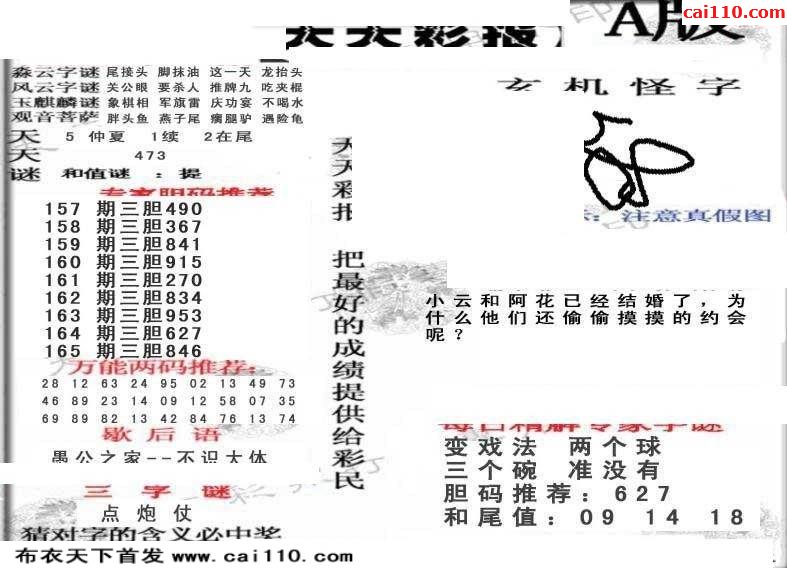 cai110.com
天天彩报 A版
森云字谜 尾接头 脚抹油 这一天 龙抬头
风云字谜 关公眼 要杀人 推牌九 吃夹棍
玉麒麟谜 象棋相 军旗雷 庆功宴 不喝水
观音菩萨 胖头鱼 燕子尾 瘸腿驴 遇险龟
天 5 仲夏 1续 2在尾
天 473
谜 和值谜 ：提
专家胆码推荐
157 期三胆490
158 期三胆367
159 期三胆841
160 期三胆915
161 期三胆270
162 期三胆834
163 期三胆953
164 期三胆627
165 期三胆846
万能两码推荐：
28 12 63 24 95 02 13 49 73
46 89 23 14 09 12 58 07 35
69 89 82 13 42 84 76 13 74
歇后语
愚公之家--不识大体
三字谜
点炮仗
猜对字的含义必中奖
布衣天下首发 www.cai110.com
天天彩报 把最好的成绩提供给彩民
玄机怪字
：注意真假图
小云和阿花已经结婚了，为
什么他们还偷偷摸摸的约会
呢？
每日精解专家字谜
变戏法 两个球
三个碗 准没有
胆码推荐：627
和尾值：09 14 18